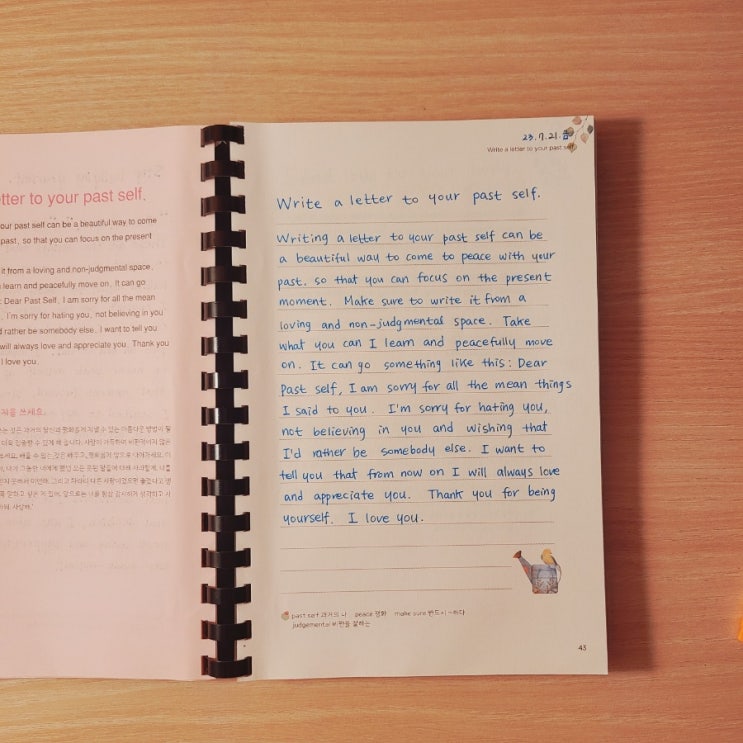 etter to your past self.
our past self can be a beautiful way to come
past, so that you can focus on the present
it from a loving and non-judgmental space.
learn and peacefully move on. It can go
: Dear Past Self, I am sorry for all the mean
. I'm sorry for hating you, not believing in you
d rather be somebody else. I want to tell you
will always love and appreciate you. Thank you
I love you.
지를 쓰세요.
것은 과거의 당신과 평화롭게 지낼 수 있는 아름다운 방법이 될
더욱 집중할 수 있게 해 줍니다. 사랑이 가득하며 비판적이지 않은
배울 수 있는 것은 배우고, 평화롭게 앞으로 나아가세요.
23.7.21.금
Write a letter to your past self
Write a letter to your past self.
Writing a letter to your past self can be
a beautiful way to come to peace with your
past. so that you can focus on the present
moment. Make sure to write it from a
loving and non-judgmental space. Take
what you can I learn and peacefully move
on. It can go something like this: Dear
Past self, I am sorry for all the mean things
I said to you. I'm sorry for hating you,
not believing in you and wishing that
I'd rather be somebody else. I want to
tell you that from now on I will always love
and appreciate you. Thank you for being
yourself. I love you.
past self 과거의 나 peace 평화 make sure 반드시 ~하다
judgemental 비판을 잘하는
43